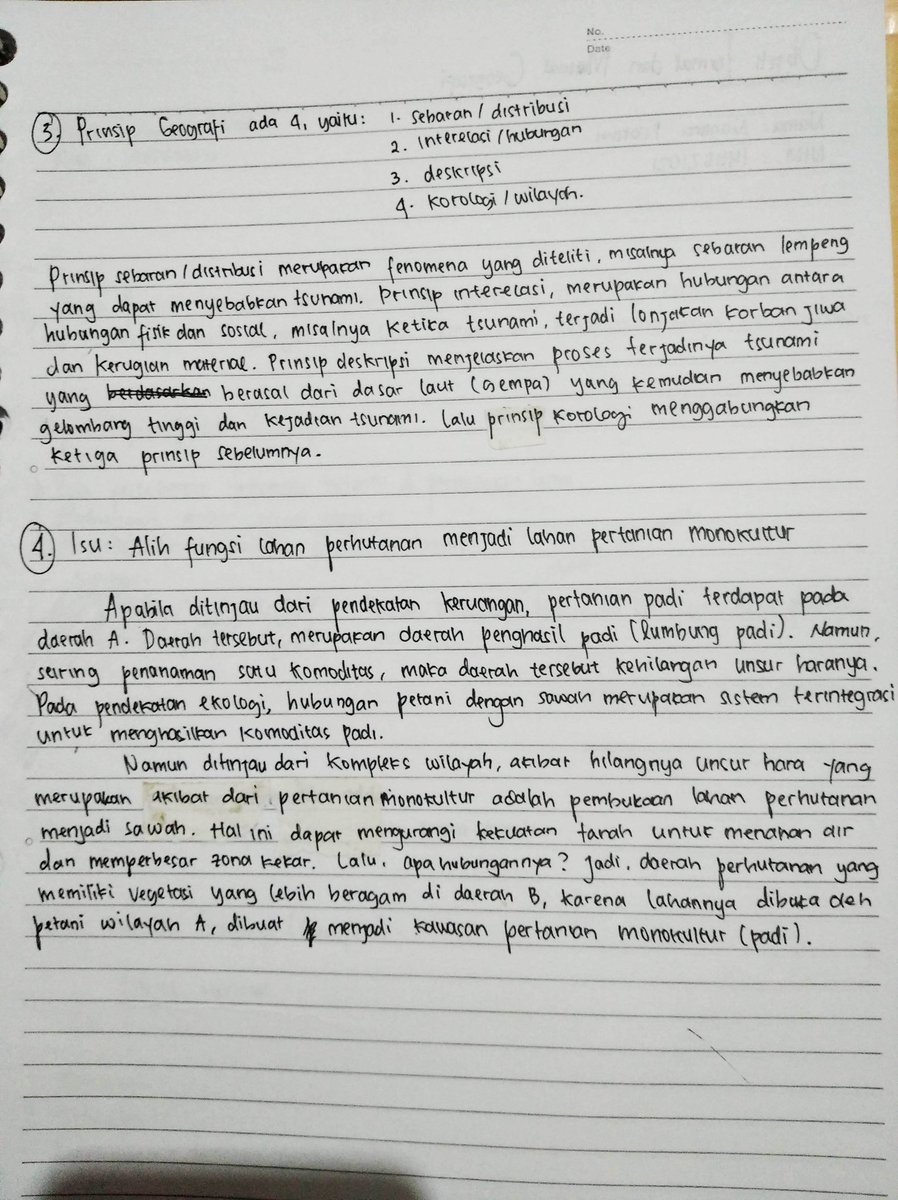 No.
Date
3. Prinsip Geografi ada 4, yaitu: 1. sebaran / distribusi
2. Interelasi / hubungan
3. deskripsi
4. Korologi / wilayah.
Prinsip sebaran / distribusi merupakan fenomena yang diteliti, misalnya sebaran lempeng
yang dapat menyebabkan tsunami. Prinsip interelasi, merupakan hubungan antara
hubungan fisik dan sosial, misalnya ketika tsunami, terjadi lonjakan korban jiwa
dan kerugian material. Prinsip deskripsi menjelaskan proses terjadinya tsunami
yang berdasarkan berasal dari dasar laut (gempa) yang kemudian menyebabkan
gelombang tinggi dan kejadian tsunami. Lalu prinsip korologi menggabungkan
ketiga prinsip sebelumnya.
4. Isu: Alih fungsi lahan perhutanan menjadi lahan pertanian monokultur
Apabila ditinjau dari pendekatan keruangan, pertanian padi terdapat pada
daerah A. Daerah tersebut, merupakan daerah penghasil padi (lumbung padi). Namun,
seiring penanaman satu komoditas, maka daerah tersebut kehilangan unsur haranya.
Pada pendekatan ekologi, hubungan petani dengan sawah merupakan sistem terintegrasi
untuk menghasilkan komoditas padi.
Namun ditinjau dari kompleks wilayah, akibat hilangnya unsur hara yang
merupakan akibat dari pertanian monokultur adalah pembukaan lahan perhutanan
menjadi sawah. Hal ini dapat mengurangi kekuatan tanah untuk menahan air
dan memperbesar zona kekar. Lalu, apa hubungannya? Jadi, daerah perhutanan yang
memiliki vegetasi yang lebih beragam di daerah B, karena lahannya dibuka oleh
petani wilayah A, dibuat menjadi kawasan pertanian monokultur (padi).